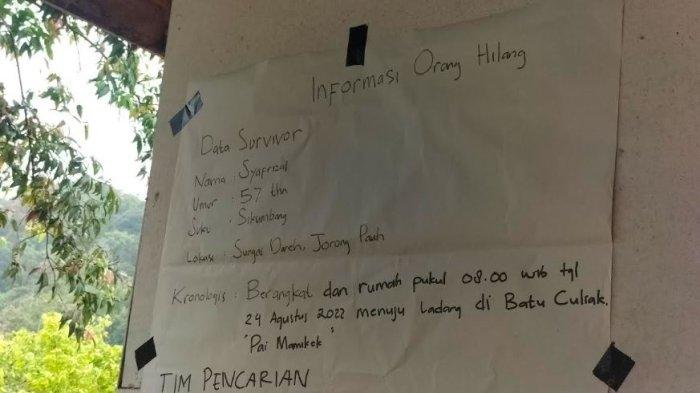 Informasi Orang Hilang
Data Survivor
Nama : Syafrizal
Umur : 57 thn
Suku : Sikumbang
Lokasi : Sungai Dareh, Jorong Pauh
Kronologis : Berangkat dari rumah pukul 08.00 wib tgl
24 Agustus 2022 menuju ladang di Batu Culiak.
"Pai Mamikek"
TIM PENCARIAN